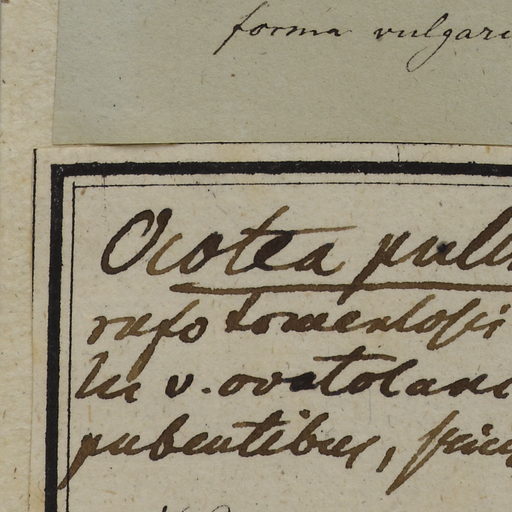 forma vulgari
Ocotea pul
rufo tomentosi
lii v. ovato lanc
pubentibus,